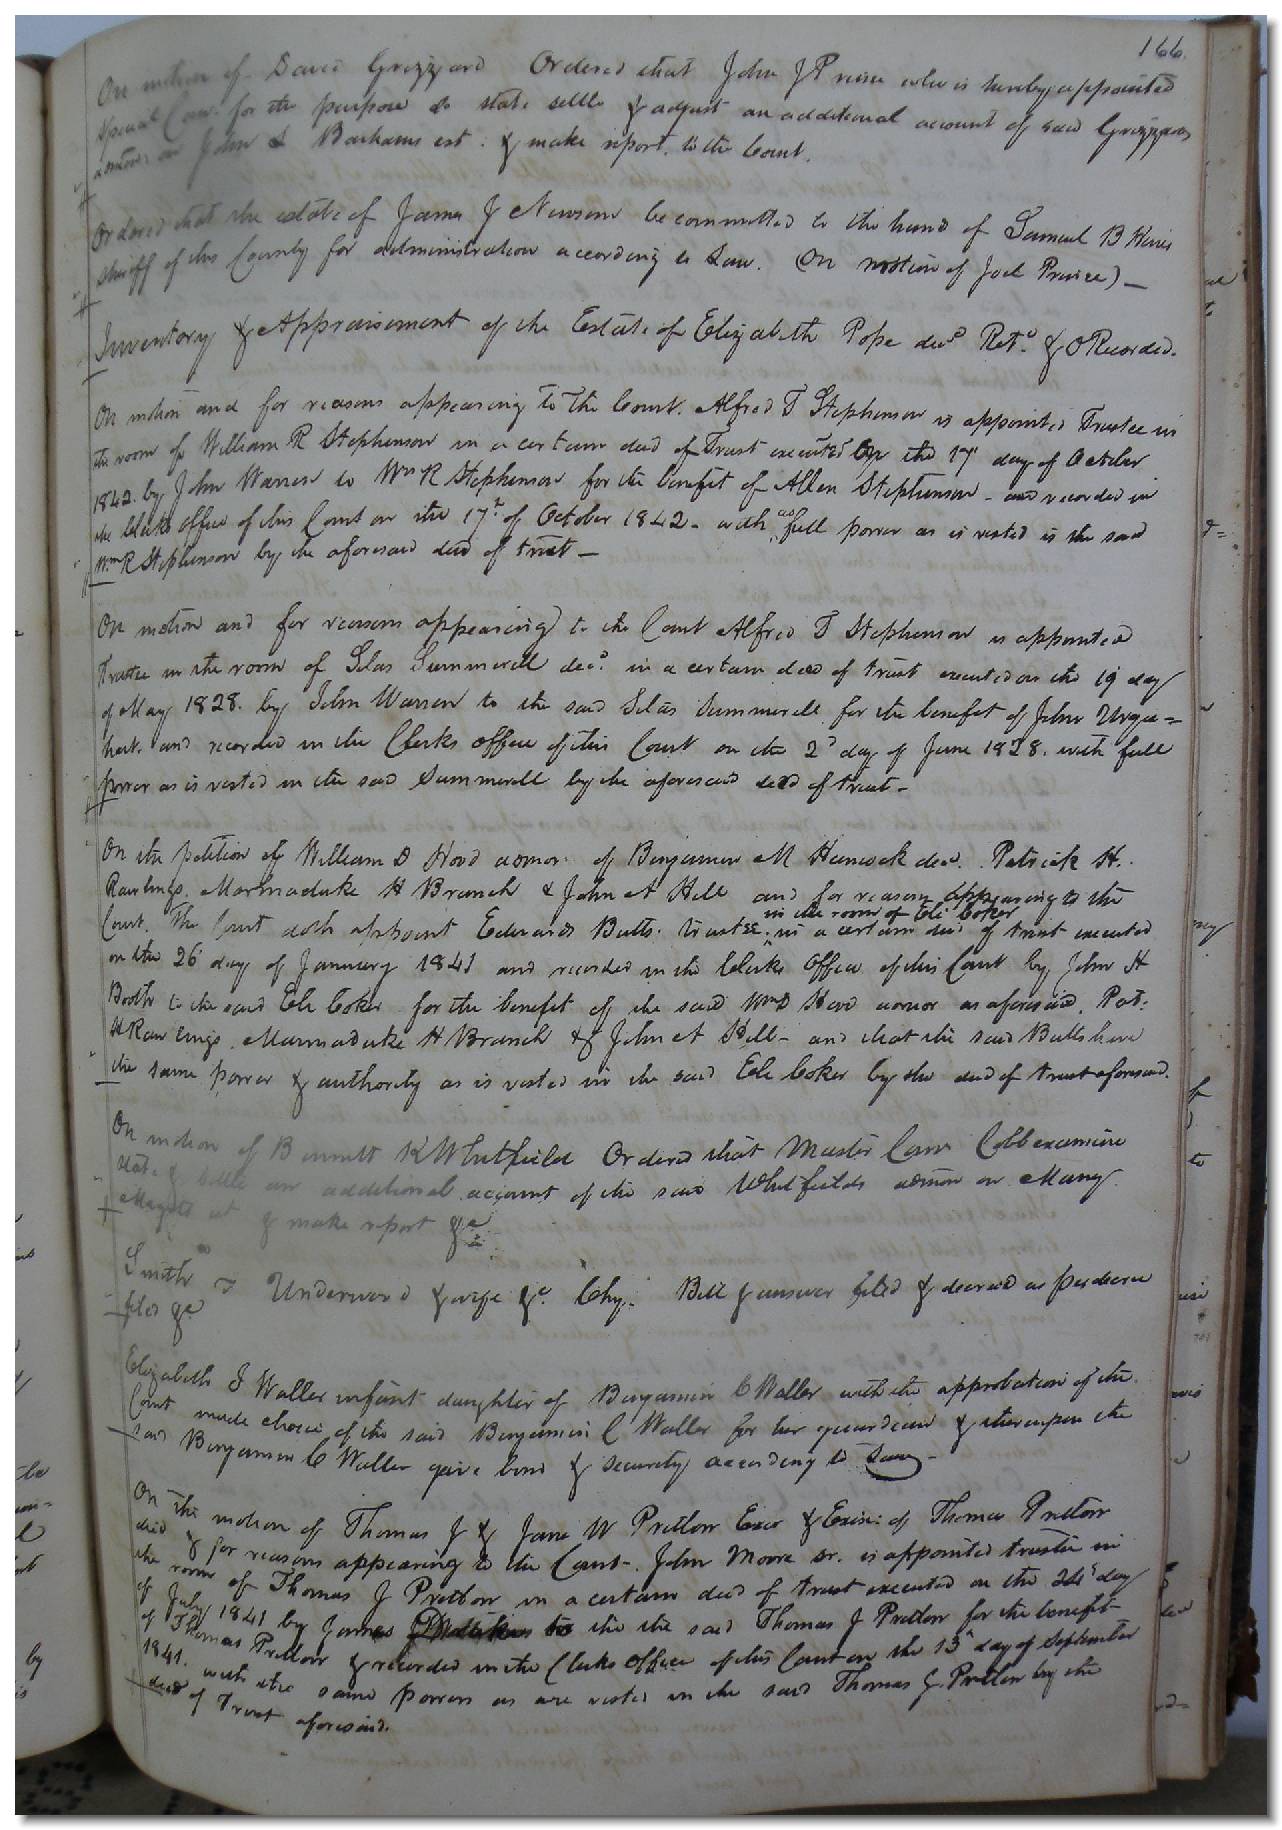 166.
On motion of David Grizzard Ordered that John J Pruise who is hereby appointed
Special Com. for the purpose do state settle & adjust an additional account of said Grizzards
admon: on John S Barhams est: & make report to the Court.
Ordered that the estate of James J Newsom be committed to the hand of Samuel B Hines
Sheriff of this County for administration according to Law. (On motion of Joel Pruise) —
Inventory & Appraisement of the Estate of Elizabeth Pope decd Retd. & O Recorded.
On motion and for reasons appearing to the Court. Alfred T Stephenson is appointed Trustee in
the room of William R Stephenson in a certain deed of Trust executed on the 17 day of October
1842. by John Warren to Wm R Stephenson for the benefit of Allen Stephenson - and recorded in
the Clerks office of this Court on the 17th of October 1842 - with as full power as is vested in the said
Wm R Stephenson by the aforesaid deed of trust —
On motion and for reasons appearing to the Court Alfred T Stephenson is appointed
Trustee in the room of Silas Summerell decd. in a certain deed of trust executed on the 19 day
of May 1828. by John Warren to the said Silas Summerell for the benefit of John Urqu=
hart. and recorded in the Clerks office of this Court on the 2d day of June 1828. with full
power as is vested in the said Summerell by the aforesaid deed of trust -
On the petition of William D Hood admor of Benjamin M Hancock decd. Patrick H.
Rawlings. Marmaduke H Branch & John A Hill and for reasons appearing to the
in the room of Eli Coker
Court. The Court doth appoint Edwards Butts. trustee in a certain deed of trust executed
on the 26 day of January 1841 and recorded in the Clerks Office of this Court by John H
Booth to the said Eli Coker for the benefit of the said Wm D Hood admor as aforesaid. Pat:
H Rawlings. Marmaduke H Branch & John A Hill - and that the said Butts have
the same power & authority as is vested in the said Eli Coker by the deed of trust aforesaid.
On motion of Bennett K Whitfield Ordered that Master Com Cobb examine
state & settle an additional account of the said Whitfields admon on Mary
est & make report &c
Smith vs Underwood & wife &c. Chy. Bill & answer filed & decreed as per decree
filed &c
Elizabeth J Waller infant daughter of Benjamin C Waller with the approbation of the
Court made choice of the said Benjamin C Waller for her guardian & thereupon the
said Benjamin C Waller gave bond & security according to Law -
On the motion of Thomas J & Jane W Pretlow Exor & Exix: of Thomas Pretlow
decd & for reasons appearing to the Court. John Moore sr. is appointed trustee in
the room of Thomas J Pretlow in a certain deed of trust executed on the 24th day
of July 1841 by James to the the said Thomas J Pretlow for the benefit
of Thomas Pretlow & recorded in the Clerks office of this Court on the 13th day of September
1841. with the same powers as are vested in the said Thomas J. Pretlow by the
deed of Trust aforesaid.